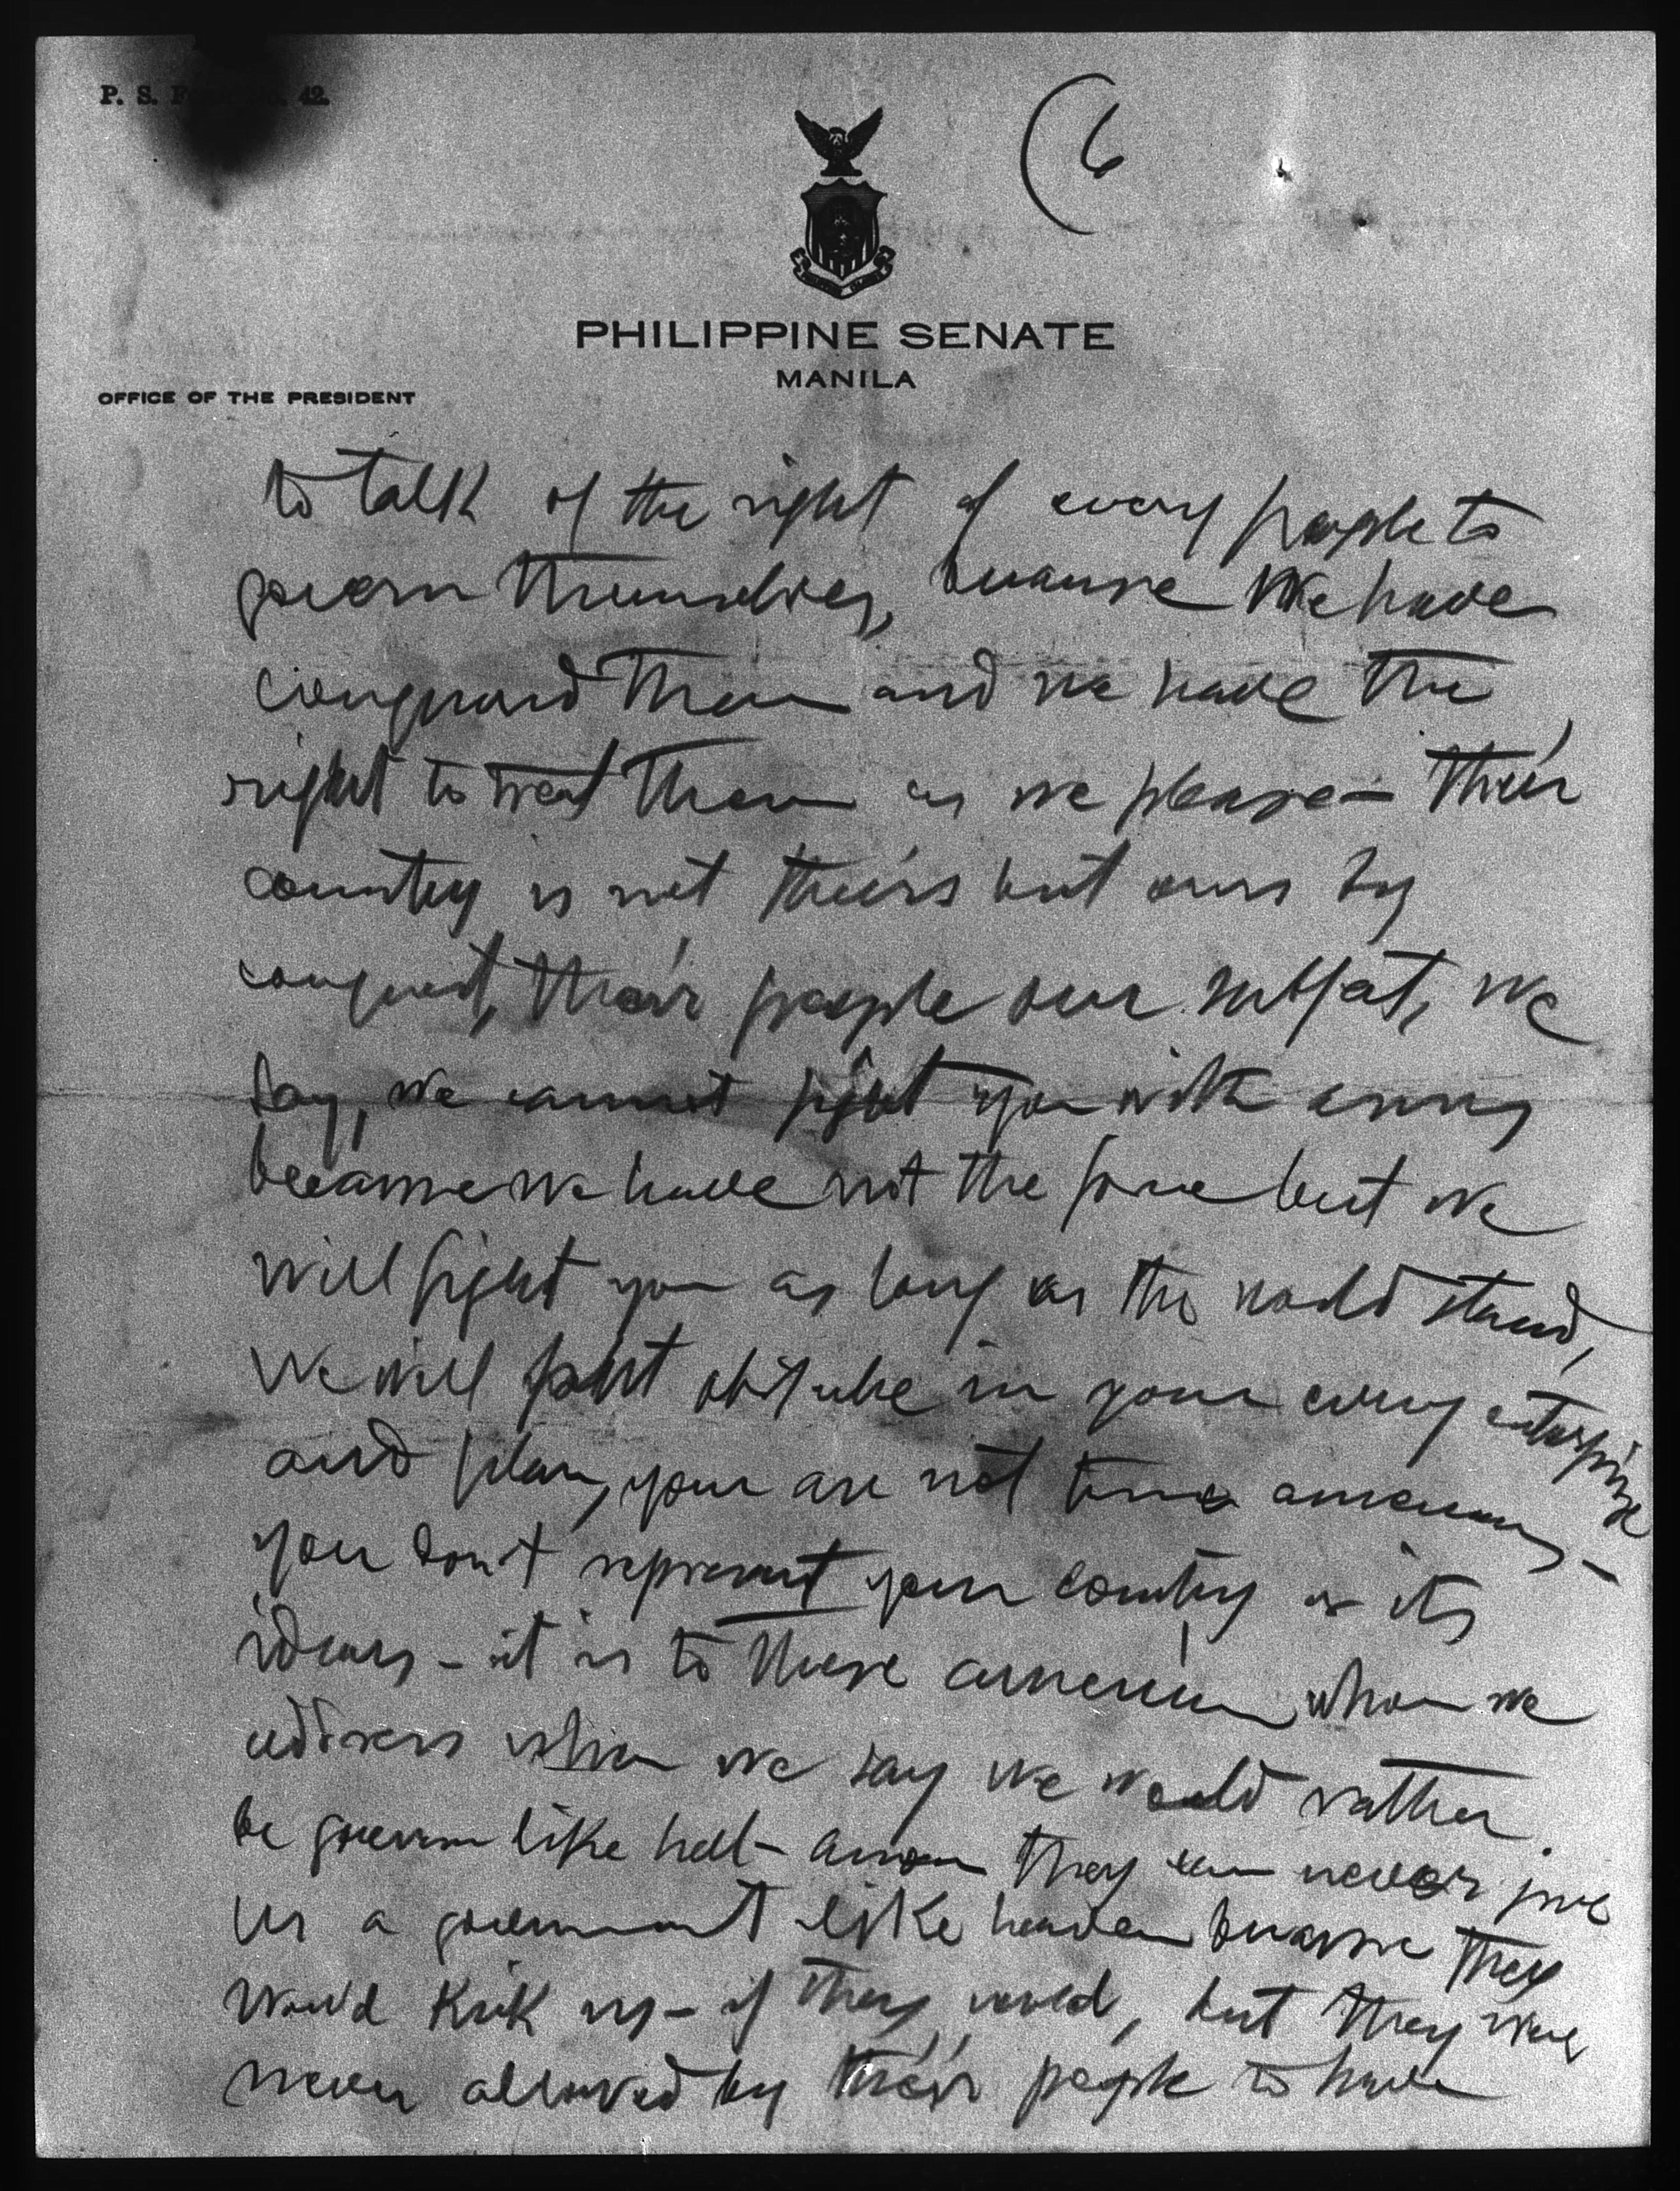 P. S. F 42.
(6
PHILIPPINE SENATE
MANILA
OFFICE OF THE PRESIDENT
to talk of the right of every people to
govern themselves, because we have
conquered them and we have the
right to treat them as we please — their
country is not theirs but ours by
conquest, their people our subject, we
say, we cannot fight you with arms
because we have not the force but we
will fight you as long as the world stand,
We will put obstacle in your every enterprize
and plan, your are not true americans —
you don't represent your country or its
ideas — it is to these american whom we
address when we say we would rather
be govern like hell — they can never give
us a government like heaven because they
would kick us — if they could, but they will
never allowed by their people to have